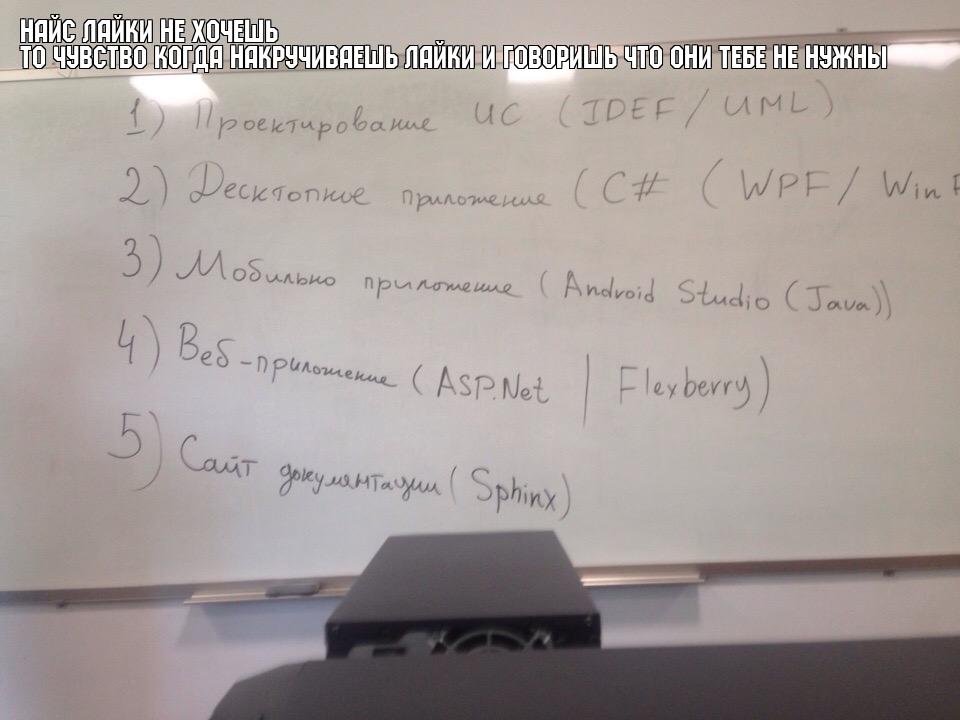 НАЙС ЛАЙКИ НЕ ХОЧЕШЬ
ТО ЧУВСТВО КОГДА НАКРУЧИВАЕШЬ ЛАЙКИ И ГОВОРИШЬ ЧТО ОНИ ТЕБЕ НЕ НУЖНЫ
1) Проектирование ИС (IDEF / UML)
2) Десктопное приложение (C# (WPF / Win F
3) Мобильно приложение (Android Studio (Java))
4) Веб-приложение (ASP.Net | Flexberry)
5) Сайт документации (Sphinx)